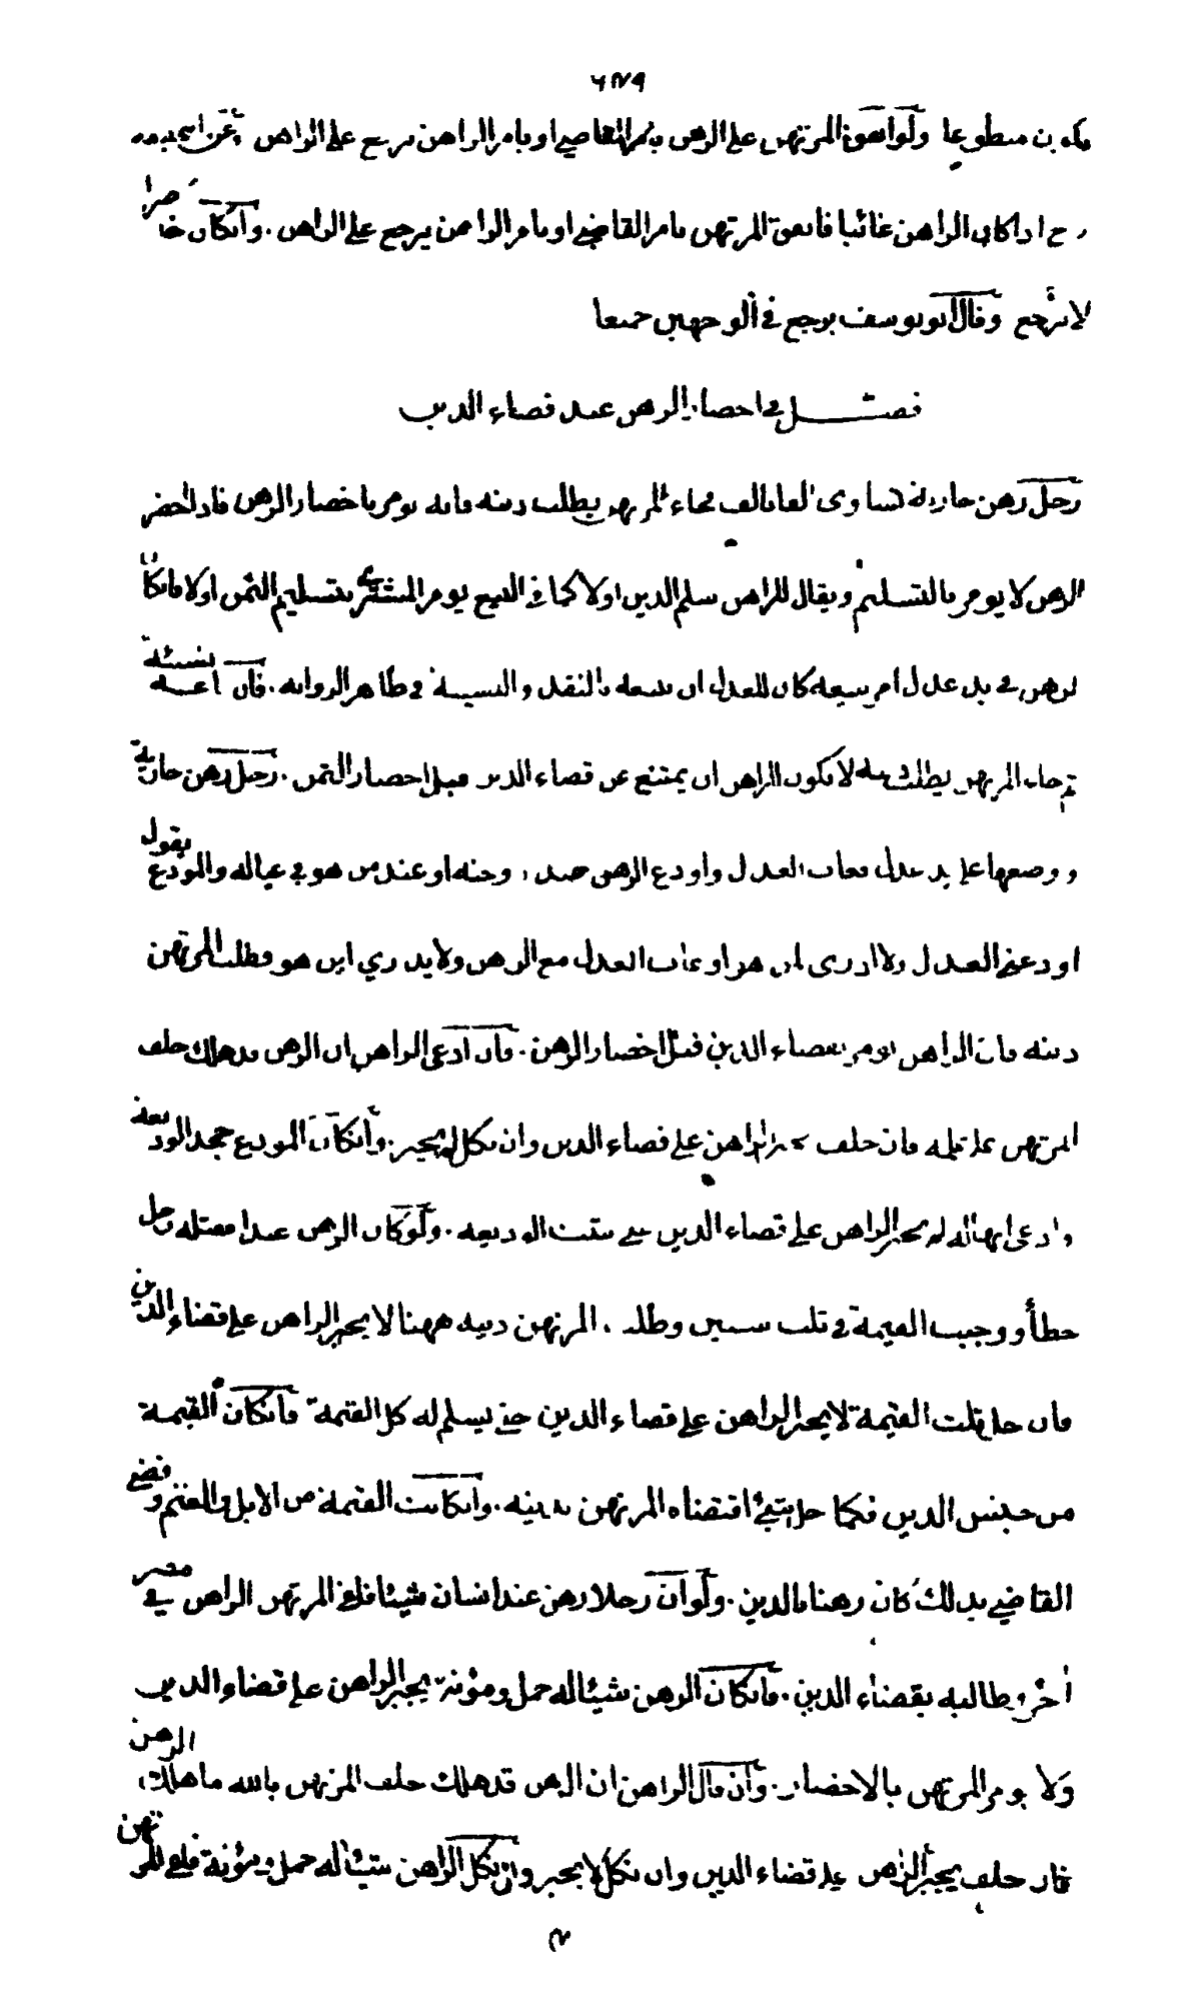 ٦٧٩
يكون متطوعا ولو انفق المرتهن على الرهن بامر القاضي او بامر الراهن يرجع على الراهن وعن ابي حنيفة
رح اذا كان الراهن غائبا فانفق المرتهن بامر القاضي او بامر الراهن يرجع على الراهن. وان كان حاضرا
لا يرجع وقال ابو يوسف يرجع في الوجهين جميعا
فصل في احضار الرهن عند قضاء الدين
رجل رهن جارية تساوى الفا بالف فجاء المرتهن يطلب دينه فانه يومر باحضار الرهن فاذا احضر
الرهن لا يومر بالتسليم ويقال للراهن سلم الدين اولا كما في البيع يومر المشتري بتسليم الثمن اولا فان كان
الرهن في يد عدل امر ببيعه كان للعدل ان يبيعه بالنقد والنسيئة في ظاهر الرواية. فان باعه بنسيئة
ثم جاء المرتهن يطلب دينه لا يكون للراهن ان يمتنع عن قضاء الدين قبل احضار الثمن. رجل رهن جارية
ووضعها على يد عدل فغاب العدل واودع الرهن عند زوجته او عند من هو في عياله والمودع يقول
اودعني العدل ولا ادرى لمن هو او غاب العدل مع الرهن ولا يدري اين هو فطلب المرتهن
دينه فان الراهن يومر بقضاء الدين قبل احضار الرهن. فان ادعى الراهن ان الرهن قد هلك حلف
المرتهن على علمه فان حلف يجبر الراهن على قضاء الدين وان نكل لم يجبر. وان كان المودع جحد الوديعة
وادعى انها له لم يجبر الراهن على قضاء الدين حتى يثبت الوديعه. ولو كان الرهن عبدا فقتله رجل
خطأ ووجبت القيمة في ثلث سنين وطلب المرتهن دينه ههنا لا يجبر الراهن على قضاء الدين
فان حل ثلث القيمة لا يجبر الراهن على قضاء الدين حتى يسلم له كل القيمة فان كان القيمة
من جنس الدين فكما حل شئ اقتضاه المرتهن بدينه. وان كانت القيمة من الابل والغنم وقضى
القاضي بذلك كان رهنا بالدين. ولو ان رجلا رهن عند انسان شيئا فلقي المرتهن الراهن في مصر
آخر يطالبه بقضاء الدين. فان كان الرهن شيئا له حمل ومؤنة يجبر الراهن على قضاء الدين
ولا يومر المرتهن بالاحضار. وان قال الراهن ان الرهن قد هلك حلف المرتهن بالله ما هلك الرهن
فان حلف يجبر الراهن على قضاء الدين وان نكل لا يجبر وان نكل الراهن شيئا له حمل ومؤنة فلقي المرتهن